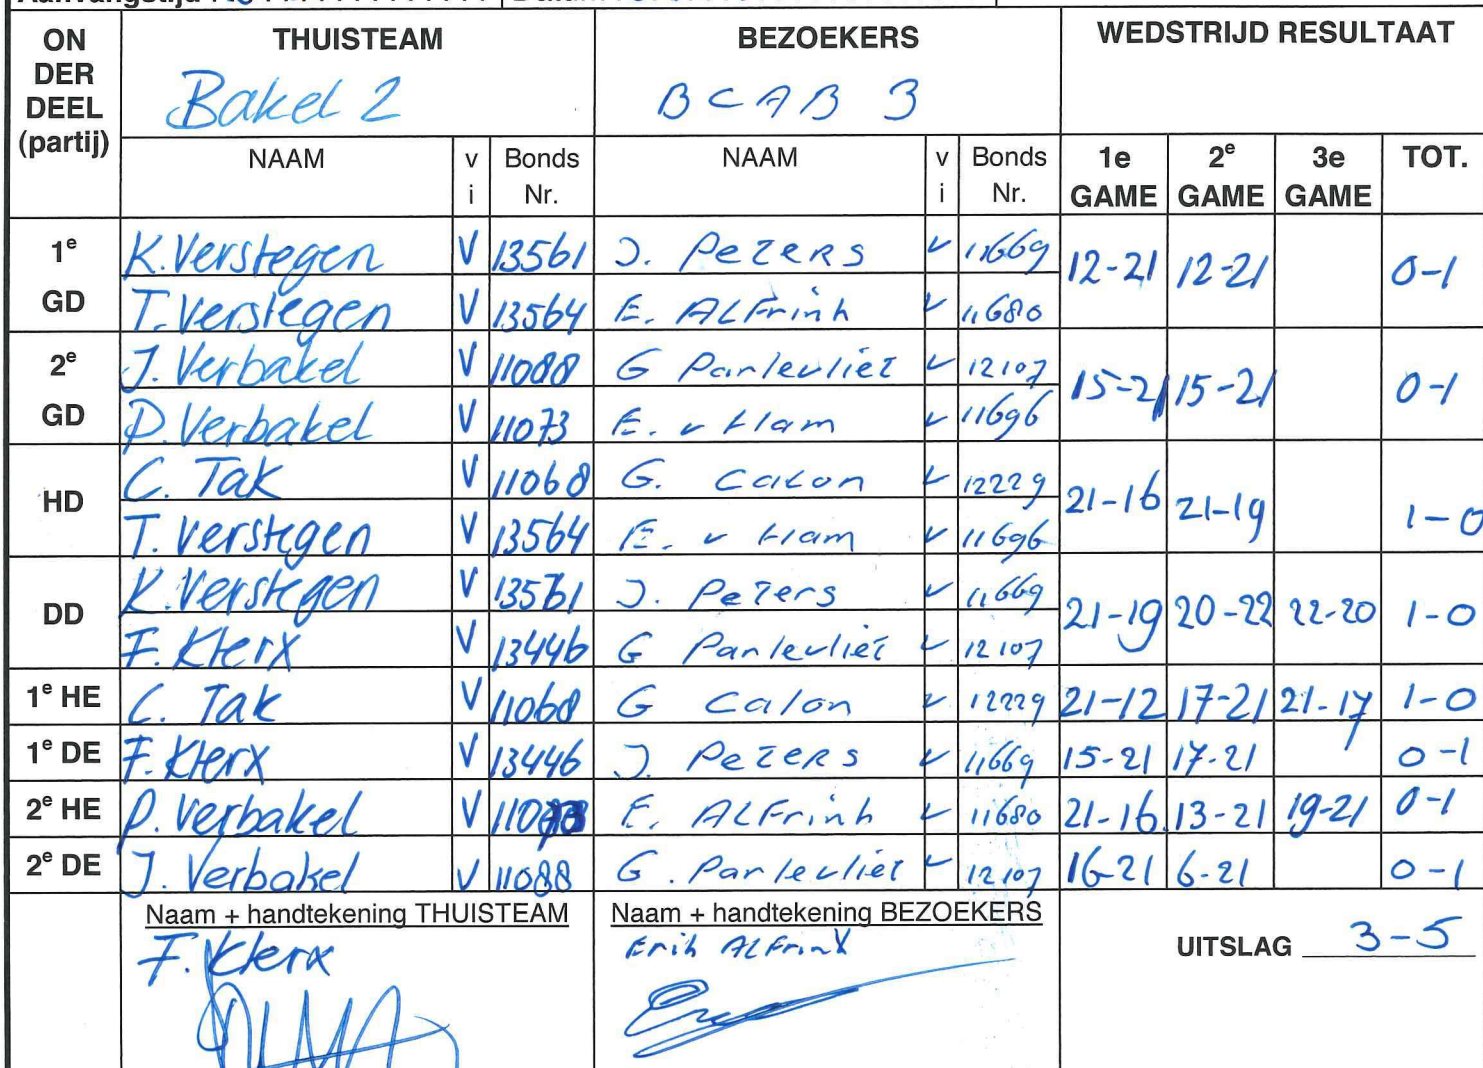 ON DER DEEL (partij) THUISTEAM BEZOEKERS WEDSTRIJD RESULTAAT
Bakel 2 BCAB 3
NAAM vi Bonds Nr. NAAM vi Bonds Nr. 1e GAME 2e GAME 3e GAME TOT.
1e GD K. Verstegen V 13561 J. Peters v 11669 12-21 12-21 0-1
T. Verstegen V 13564 E. ALFrink v 11680
2e GD J. Verbakel V 11088 G Parlevliet v 12107 15-21 15-21 0-1
P. Verbakel V 11073 E. v Ham v 11696
HD C. Tak V 11068 G. Calon v 12229 21-16 21-19 1-0
T. Verstegen V 13564 E. v Ham v 11696
DD K. Verstegen V 13561 J. Peters v 11669 21-19 20-22 22-20 1-0
F. Klerx V 13446 G Parlevliet v 12107
1e HE C. Tak V 11068 G Calon v 12229 21-12 17-21 21-17 1-0
1e DE F. Klerx V 13446 J. Peters v 11669 15-21 17-21 0-1
2e HE P. Verbakel V 11073 E. ALFrink v 11680 21-16 13-21 19-21 0-1
2e DE J. Verbakel V 11088 G. Parlevliet v 12107 16-21 6-21 0-1
Naam + handtekening THUISTEAM Naam + handtekening BEZOEKERS
F. Klerx Erik ALFrink UITSLAG 3-5